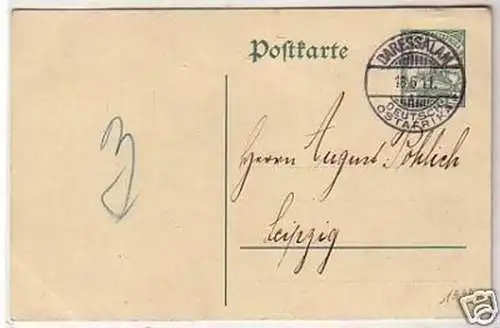 Postkarte
DARESSALAM
18 6 11.
DEUTSCH
OSTAFRIKA
Herrn August Pöhlich
Leipzig